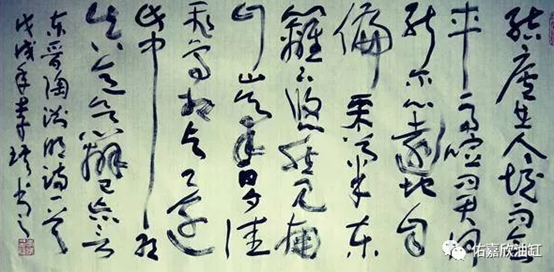 结庐在人境而无
车马喧问君何
能尔心远地自
偏采菊东
篱下悠然见南
山山气日夕佳
飞鸟相与还
此中有
真意欲辨已忘言
东晋陶渊明诗一首
戊戌年李书
佑嘉欣油缸